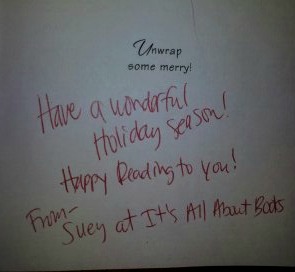 Unwrap
some merry!
Have a wonderful
Holiday Season!
Happy Reading to you!
From-
Suey at It's All About Books